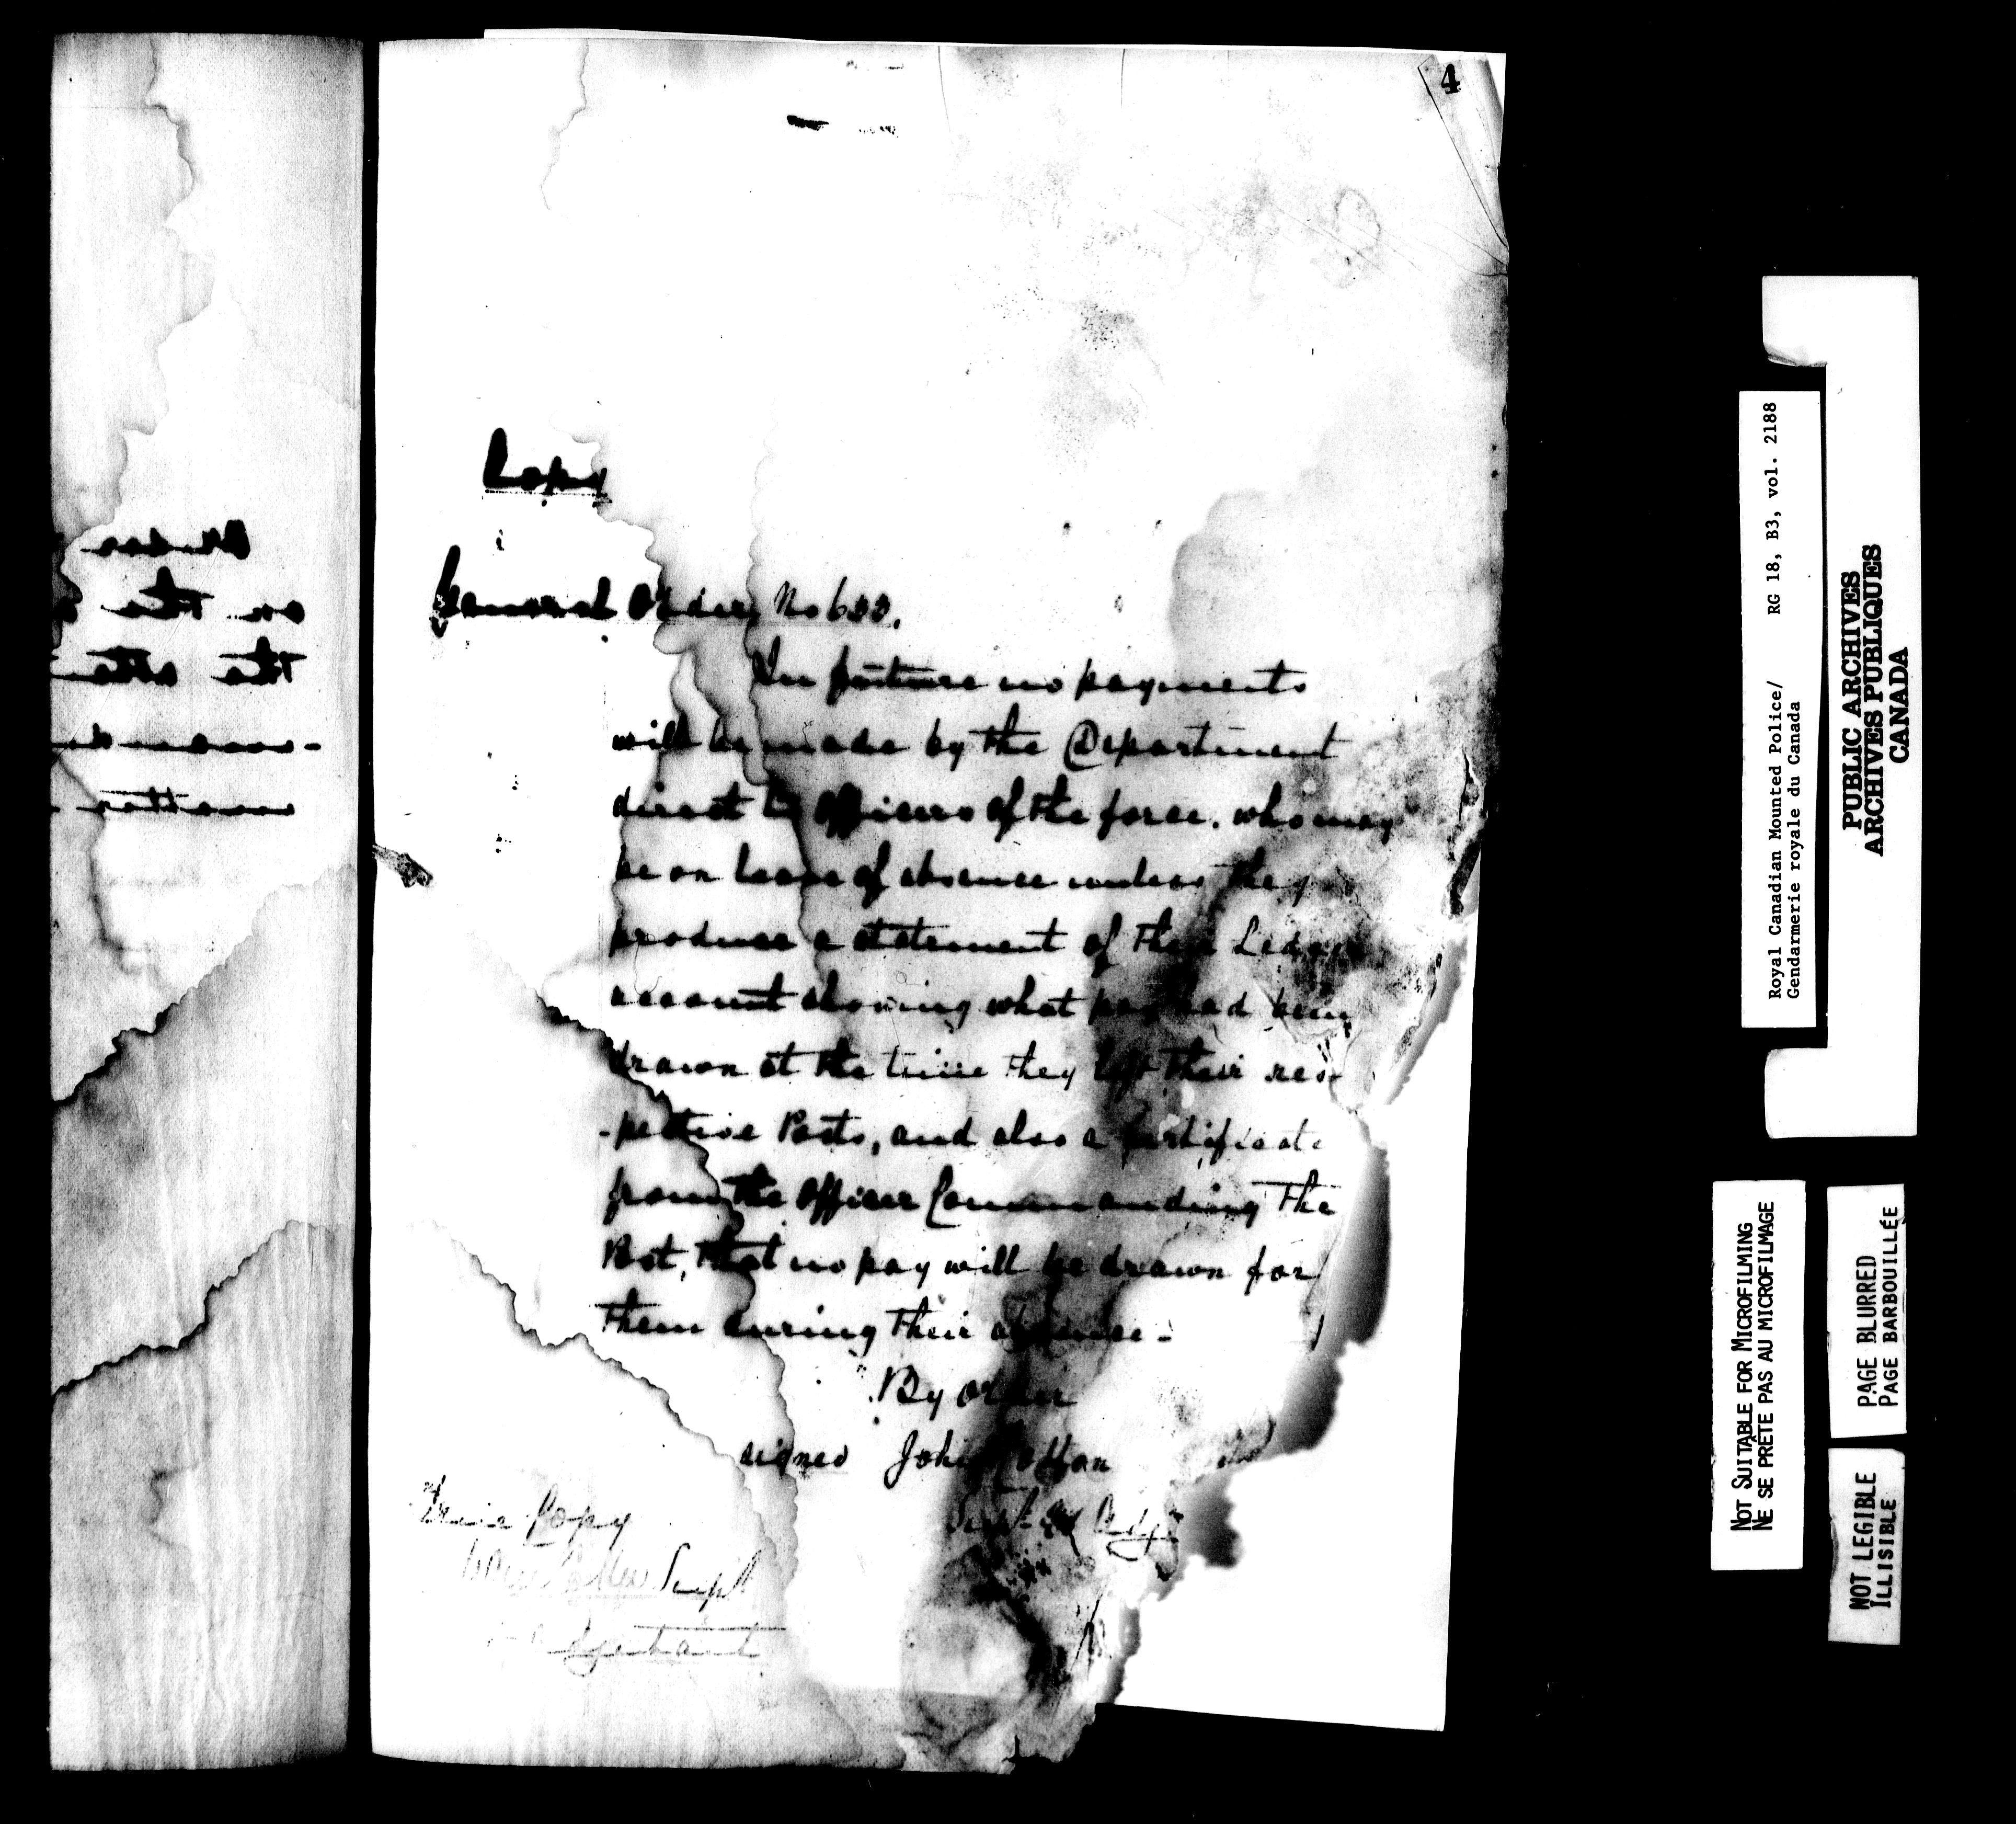 4
Copy
General Order No 600.
In future no payments
will be made by the Department
direct to Officers of the force. who may
be on leave of absence unless they
produce a statement of their Ledger
account showing what pay had been
drawn at the time they left their res-
-pective Posts, and also a Certificate
from the Officer Commanding the
Post, that no pay will be drawn for
them during their absence -
By order
signed John Cotton
Supt & Adjt
True Copy
Supt
Adjutant
Royal Canadian Mounted Police/ RG 18, B3, vol. 2188
Gendarmerie royale du Canada
PUBLIC ARCHIVES
ARCHIVES PUBLIQUES
CANADA
NOT SUITABLE FOR MICROFILMING
NE SE PRÊTE PAS AU MICROFILMAGE
PAGE BLURRED
PAGE BARBOUILLÉE
NOT LEGIBLE
ILLISIBLE